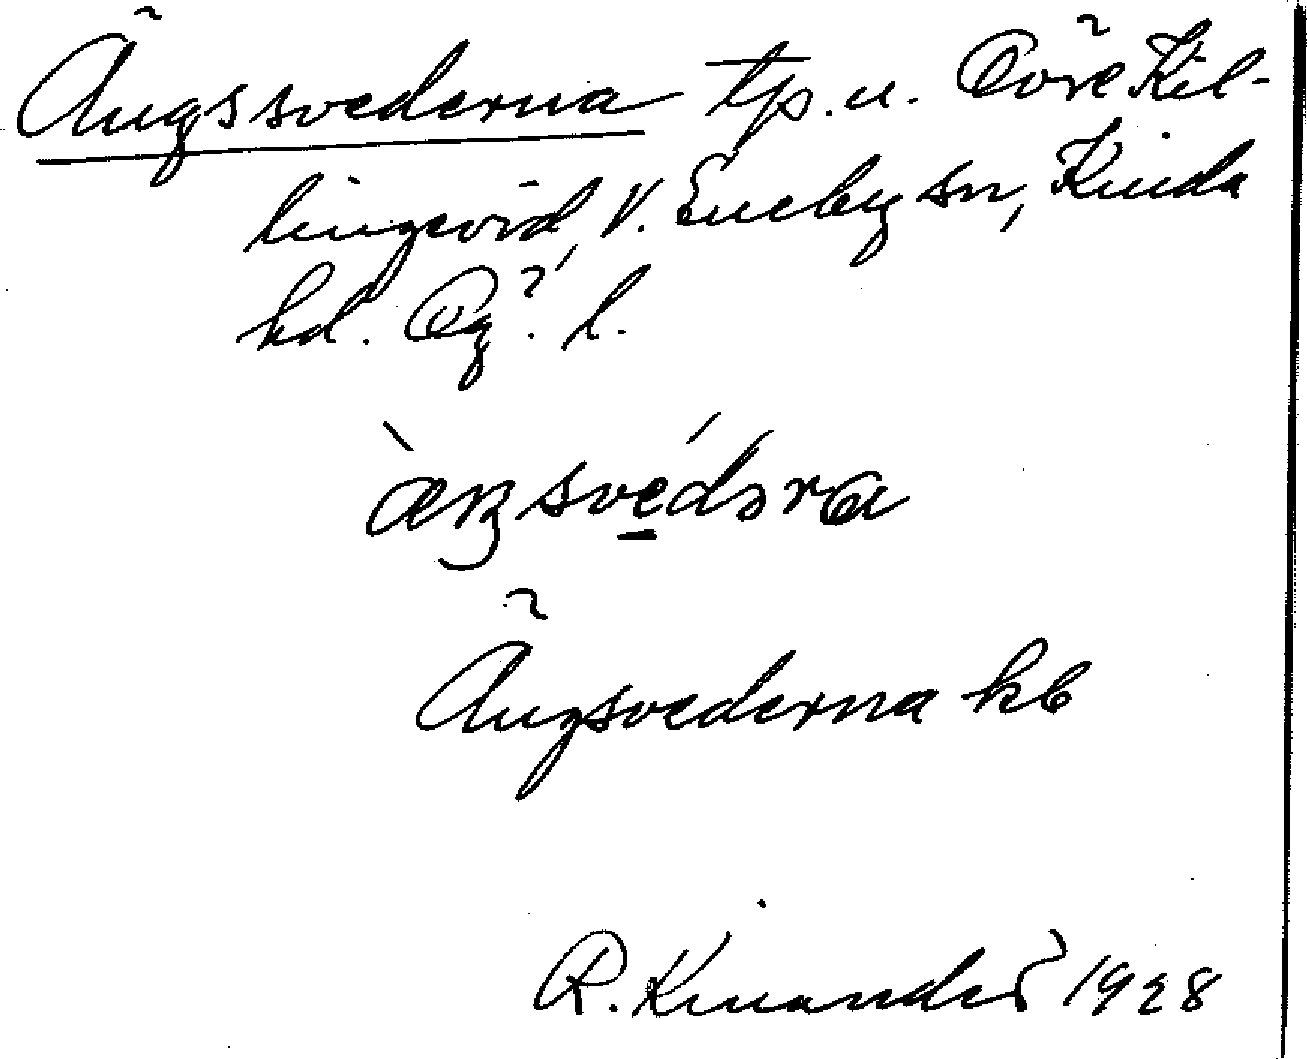 Ängssvederna tp. u. Övre Kil-
lingevid, V. Eneby sn, Kinda
hd. Ög. l.
æŋsvédəra
Ängsvederna kb
R. Kinander 1928